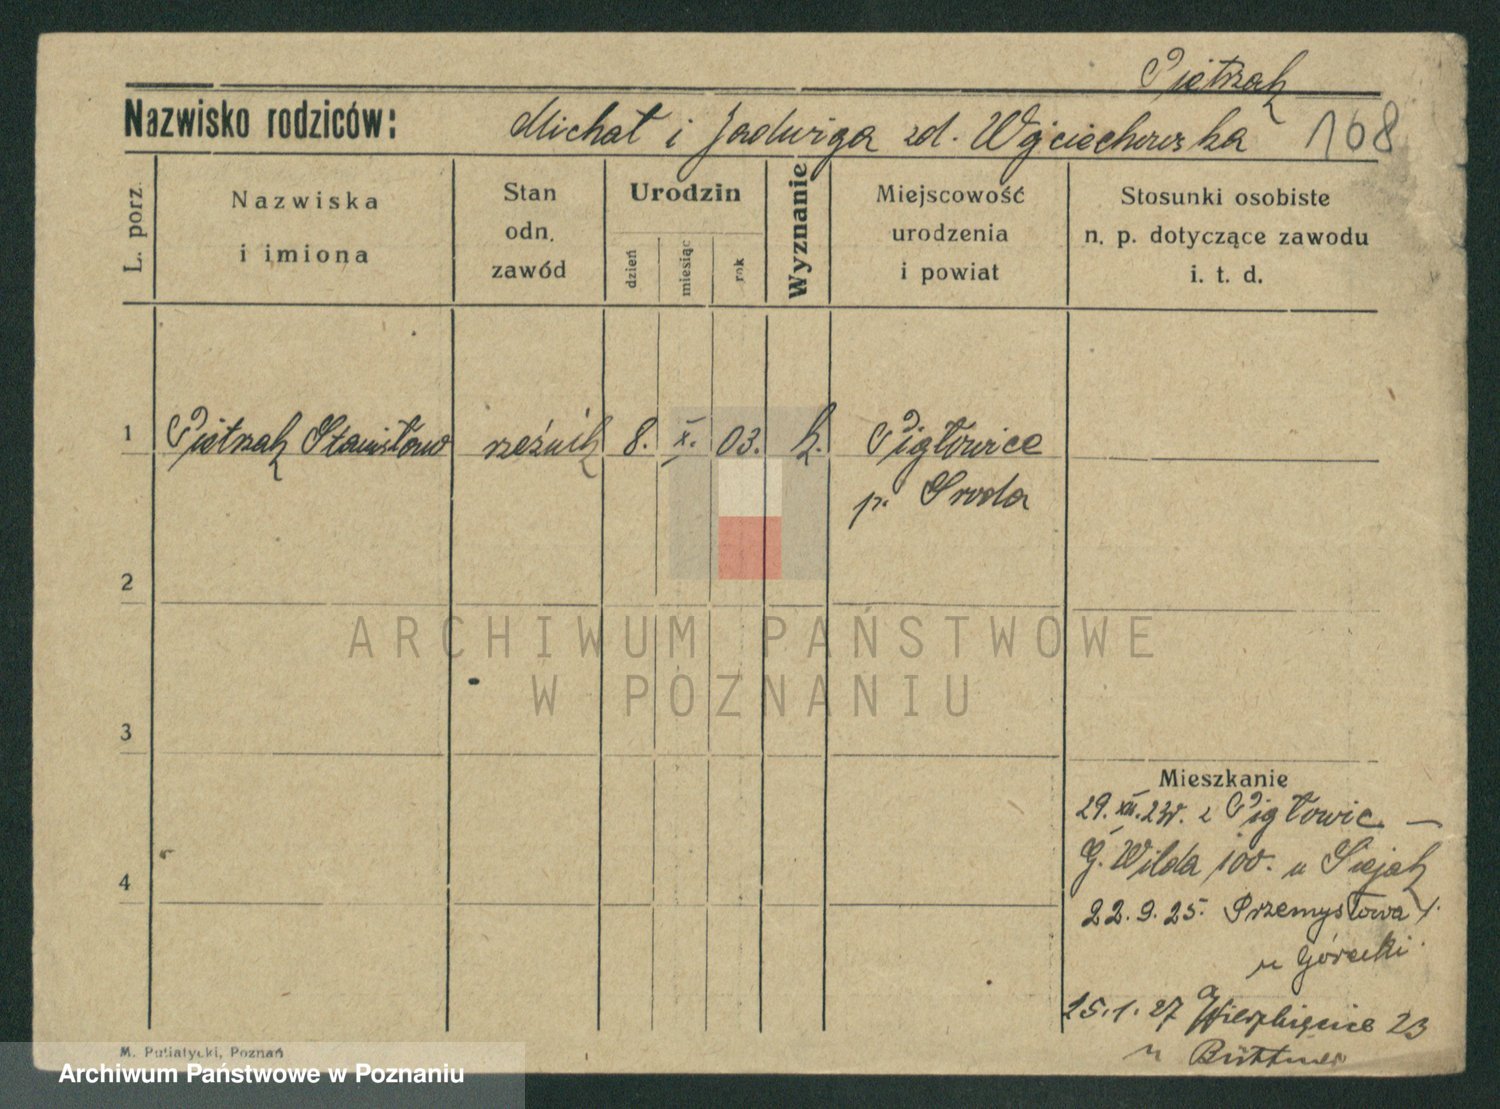 Pietrzak
Nazwisko rodziców: Michał i Jadwiga zd. Wojciechowska 168
L. porz.
Nazwiska
i imiona
Stan
odn.
zawód
Urodzin
dzień
miesiąc
rok
Wyznanie
Miejscowość
urodzenia
i powiat
Stosunki osobiste
n. p. dotyczące zawodu
i. t. d.
1 Pietrzak Stanisław rzeźnik 8. X. 03. k. Pigłowice
p. Sroda
2
ARCHIWUM PAŃSTWOWE
W POZNANIU
3
Mieszkanie
29. XII. 23r. z Pigłowic —
G. Wilda 100. u Siejak
4
22.9.25. Przemysłowa
u Górecki
25.1.27 Wierzbięcice 23
u Büttner
M. Putiatycki, Poznań
Archiwum Państwowe w Poznaniu